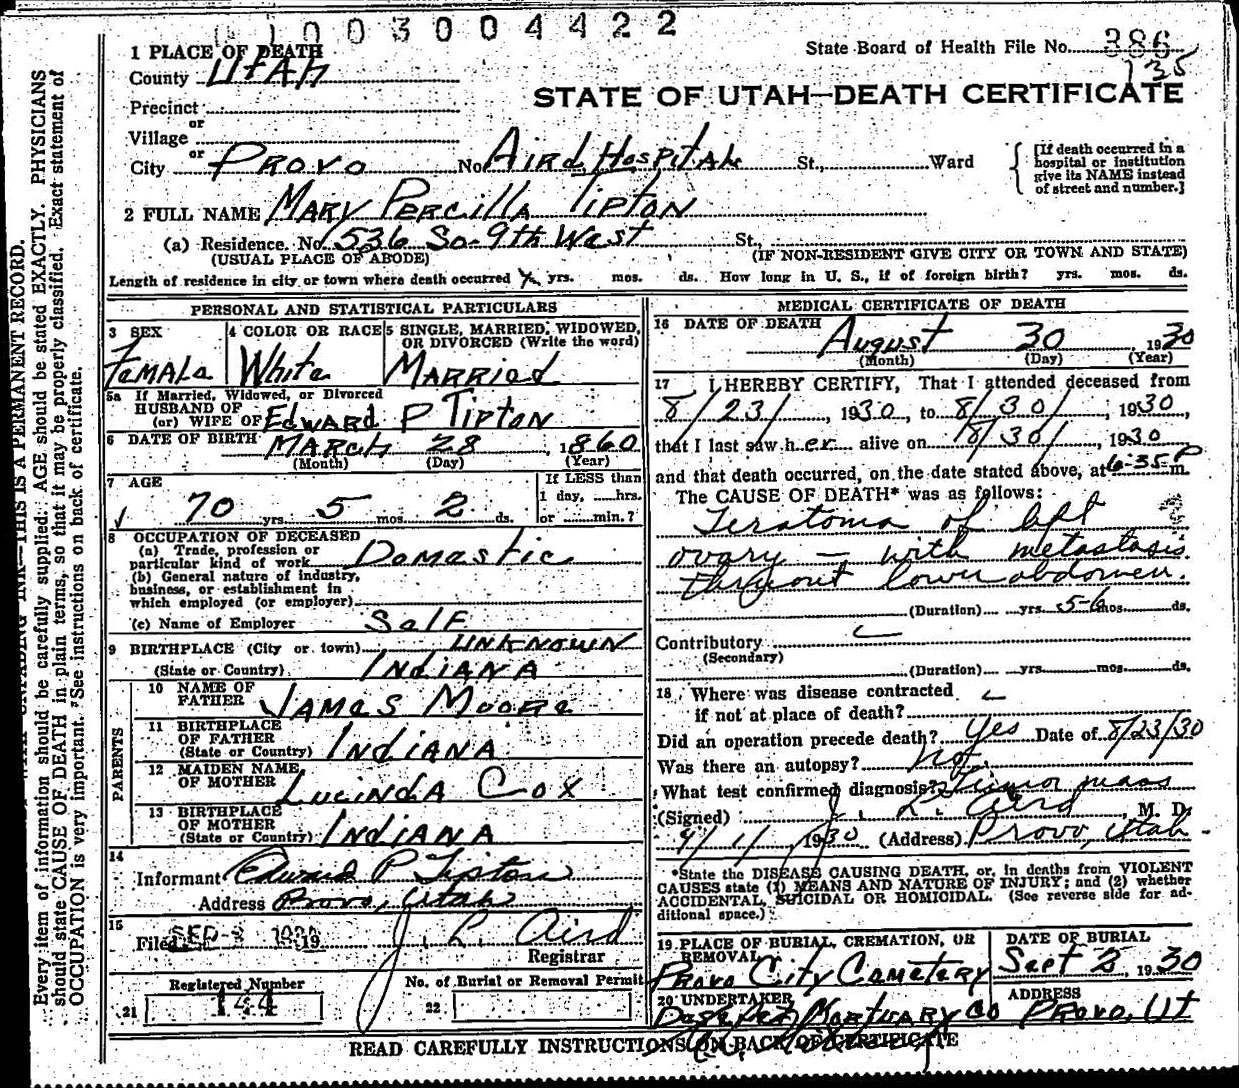 1003004422
State Board of Health File No. 386
135
1 PLACE OF DEATH
County UTAH
STATE OF UTAH—DEATH CERTIFICATE
Precinct
or
Village
or
City PROVO No. Aird Hospital St., Ward
[If death occurred in a hospital or institution give its NAME instead of street and number.]
2 FULL NAME MARY PERCILLA TIPTON
(a) Residence. No. 536 So-9th West St.,
(USUAL PLACE OF ABODE) (IF NON-RESIDENT GIVE CITY OR TOWN AND STATE)
Length of residence in city or town where death occurred yrs. mos. ds. How long in U. S., if of foreign birth? yrs. mos. ds.
PERSONAL AND STATISTICAL PARTICULARS
3 SEX
Female
4 COLOR OR RACE
White
5 SINGLE, MARRIED, WIDOWED, OR DIVORCED (Write the word)
MARRIED
5a If Married, Widowed, or Divorced
HUSBAND OF
(or) WIFE OF Edward P Tipton
6 DATE OF BIRTH March 28, 1860
(Month) (Day) (Year)
7 AGE
If LESS than
1 day, hrs.
or min.?
70 yrs. 5 mos. 2 ds.
8 OCCUPATION OF DECEASED
(a) Trade, profession or
particular kind of work Domestic
(b) General nature of industry,
business, or establishment in
which employed (or employer)
(c) Name of Employer Self
9 BIRTHPLACE (City or town) UNKNOWN
(State or Country) INDIANA
PARENTS
10 NAME OF
FATHER JAMES MOORE
11 BIRTHPLACE
OF FATHER
(State or Country) INDIANA
12 MAIDEN NAME
OF MOTHER LUCINDA COX
13 BIRTHPLACE
OF MOTHER
(State or Country) INDIANA
14
Informant Edward P Tipton
Address Provo, Utah
15
Filed 19 J. L. Aird
Registrar
Registered Number
21 144
No. of Burial or Removal Permit
22
MEDICAL CERTIFICATE OF DEATH
16 DATE OF DEATH August 30 1930
(Month) (Day) (Year)
17 I HEREBY CERTIFY, That I attended deceased from
8/23/, 1930, to 8/30/, 1930,
that I last saw her alive on 8/30/, 1930
and that death occurred, on the date stated above, at 6-35 P m.
The CAUSE OF DEATH* was as follows:
Teratoma of left
ovary — with metastasis
thruout lower abdomen.
(Duration) yrs. 5-6 mos. ds.
Contributory
(Secondary)
(Duration) yrs. mos. ds.
18 Where was disease contracted
if not at place of death?
Did an operation precede death? Yes Date of 8/23/30
Was there an autopsy? No.
What test confirmed diagnosis? Tumor mass
(Signed) J. L. Aird M. D.
9/1/, 1930 (Address) Provo, Utah
*State the DISEASE CAUSING DEATH, or, in deaths from VIOLENT
CAUSES state (1) MEANS AND NATURE OF INJURY; and (2) whether
ACCIDENTAL, SUICIDAL OR HOMICIDAL. (See reverse side for ad-
ditional space.)
19 PLACE OF BURIAL, CREMATION, OR
REMOVAL
Provo City Cemetery
DATE OF BURIAL
Sept 2, 1930
20 UNDERTAKER
Mortuary Co
ADDRESS
Provo, Ut
READ CAREFULLY INSTRUCTIONS ON BACK OF CERTIFICATE
THIS IS A PERMANENT RECORD.
Every item of information should be carefully supplied. AGE should be stated EXACTLY. PHYSICIANS
should state CAUSE OF DEATH in plain terms, so that it may be properly classified. Exact statement of
OCCUPATION is very important. See instructions on back of certificate.